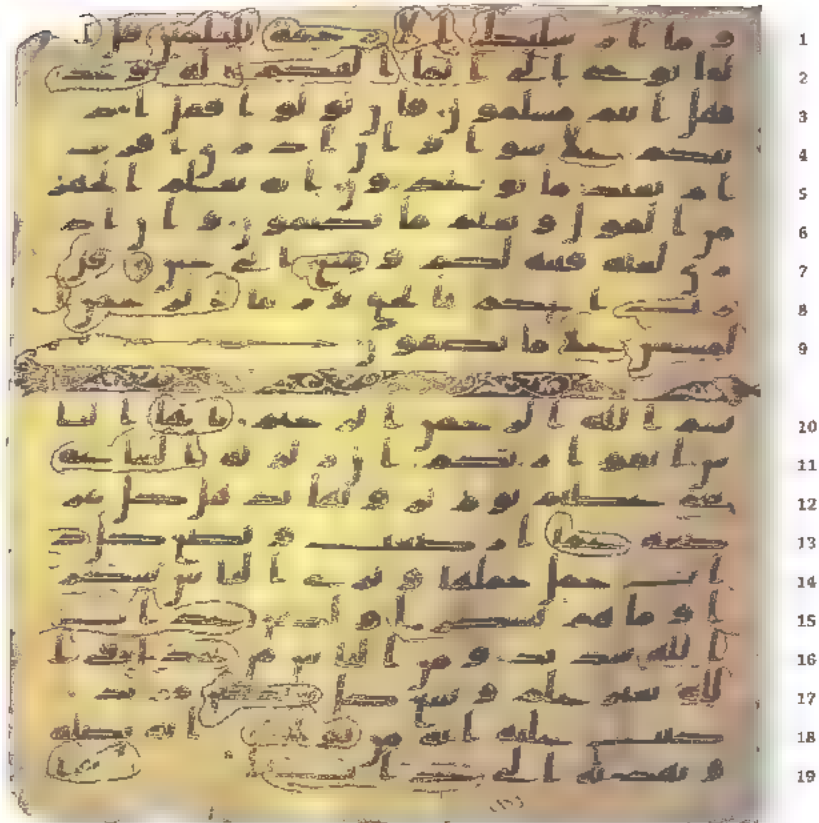 وما ارسلنك الا رحمة للعلمين قل ا 1
نما يوحى الي انما الهكم اله وحد 2
فهل انتم مسلمون فان تولوا فقل اذ 3
نتكم على سوا وان ادري اقريب 4
ام بعيد ما توعدون انه يعلم الجهر 5
من القول ويعلم ما تكتمون وان اد 6
ري لعله فتنة لكم ومتع الى حين قل 7
رب احكم بالحق وربنا الرحمن ا 8
لمستعن على ما تصفون 9
بسم الله الرحمن الرحيم يايها النا 10
س اتقوا ربكم ان زلزلة الساعة 11
شي عظيم يوم ترونها تذهل كل مر 12
ضعة عما ارضعت وتضع كل ذ 13
ات حمل حملها وترى الناس سكر 14
ى وما هم بسكرى ولكن عذاب 15
الله شديد ومن الناس من يجدل في ا 16
لله بغير علم ويتبع كل شيطن مريد 17
كتب عليه انه من تولاه فانه يضله 18
ويهديه الى عذاب السعير 19